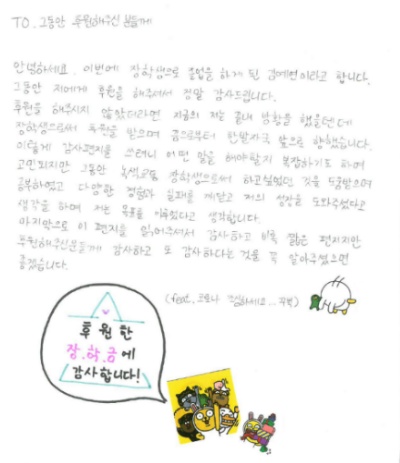 TO. 그동안 후원해주신 분들께
안녕하세요. 이번에 장학생으로 졸업을 하게 된 김예연이라고 합니다.
그동안 저에게 후원을 해주셔서 정말 감사드립니다.
후원을 해주시지 않았더라면 지금의 저는 끝내 방황을 했을텐데
장학생으로써 후원을 받으며 꿈으로부터 한발자국 앞으로 향했습니다.
이렇게 감사편지를 쓰려니 어떤 말을 해야할지 복잡하기도 하며
고민되지만 그동안 장학생으로써 하고싶었던 것을
다양한 경험과 깨닫고 저의 성장을 도와주셨다고
생각을 하며 저는 목표를 이루었다고 생각합니다.
마지막으로 이 편지를 읽어주셔서 감사하고 비록 짧은 편지지만
후원해주신분들께 감사하고 또 감사하다는 것을 꼭 알아주셨으면
좋겠습니다.
(feat. 코로나 조심하세요..)
후원한
장.학.금에
감사합니다!